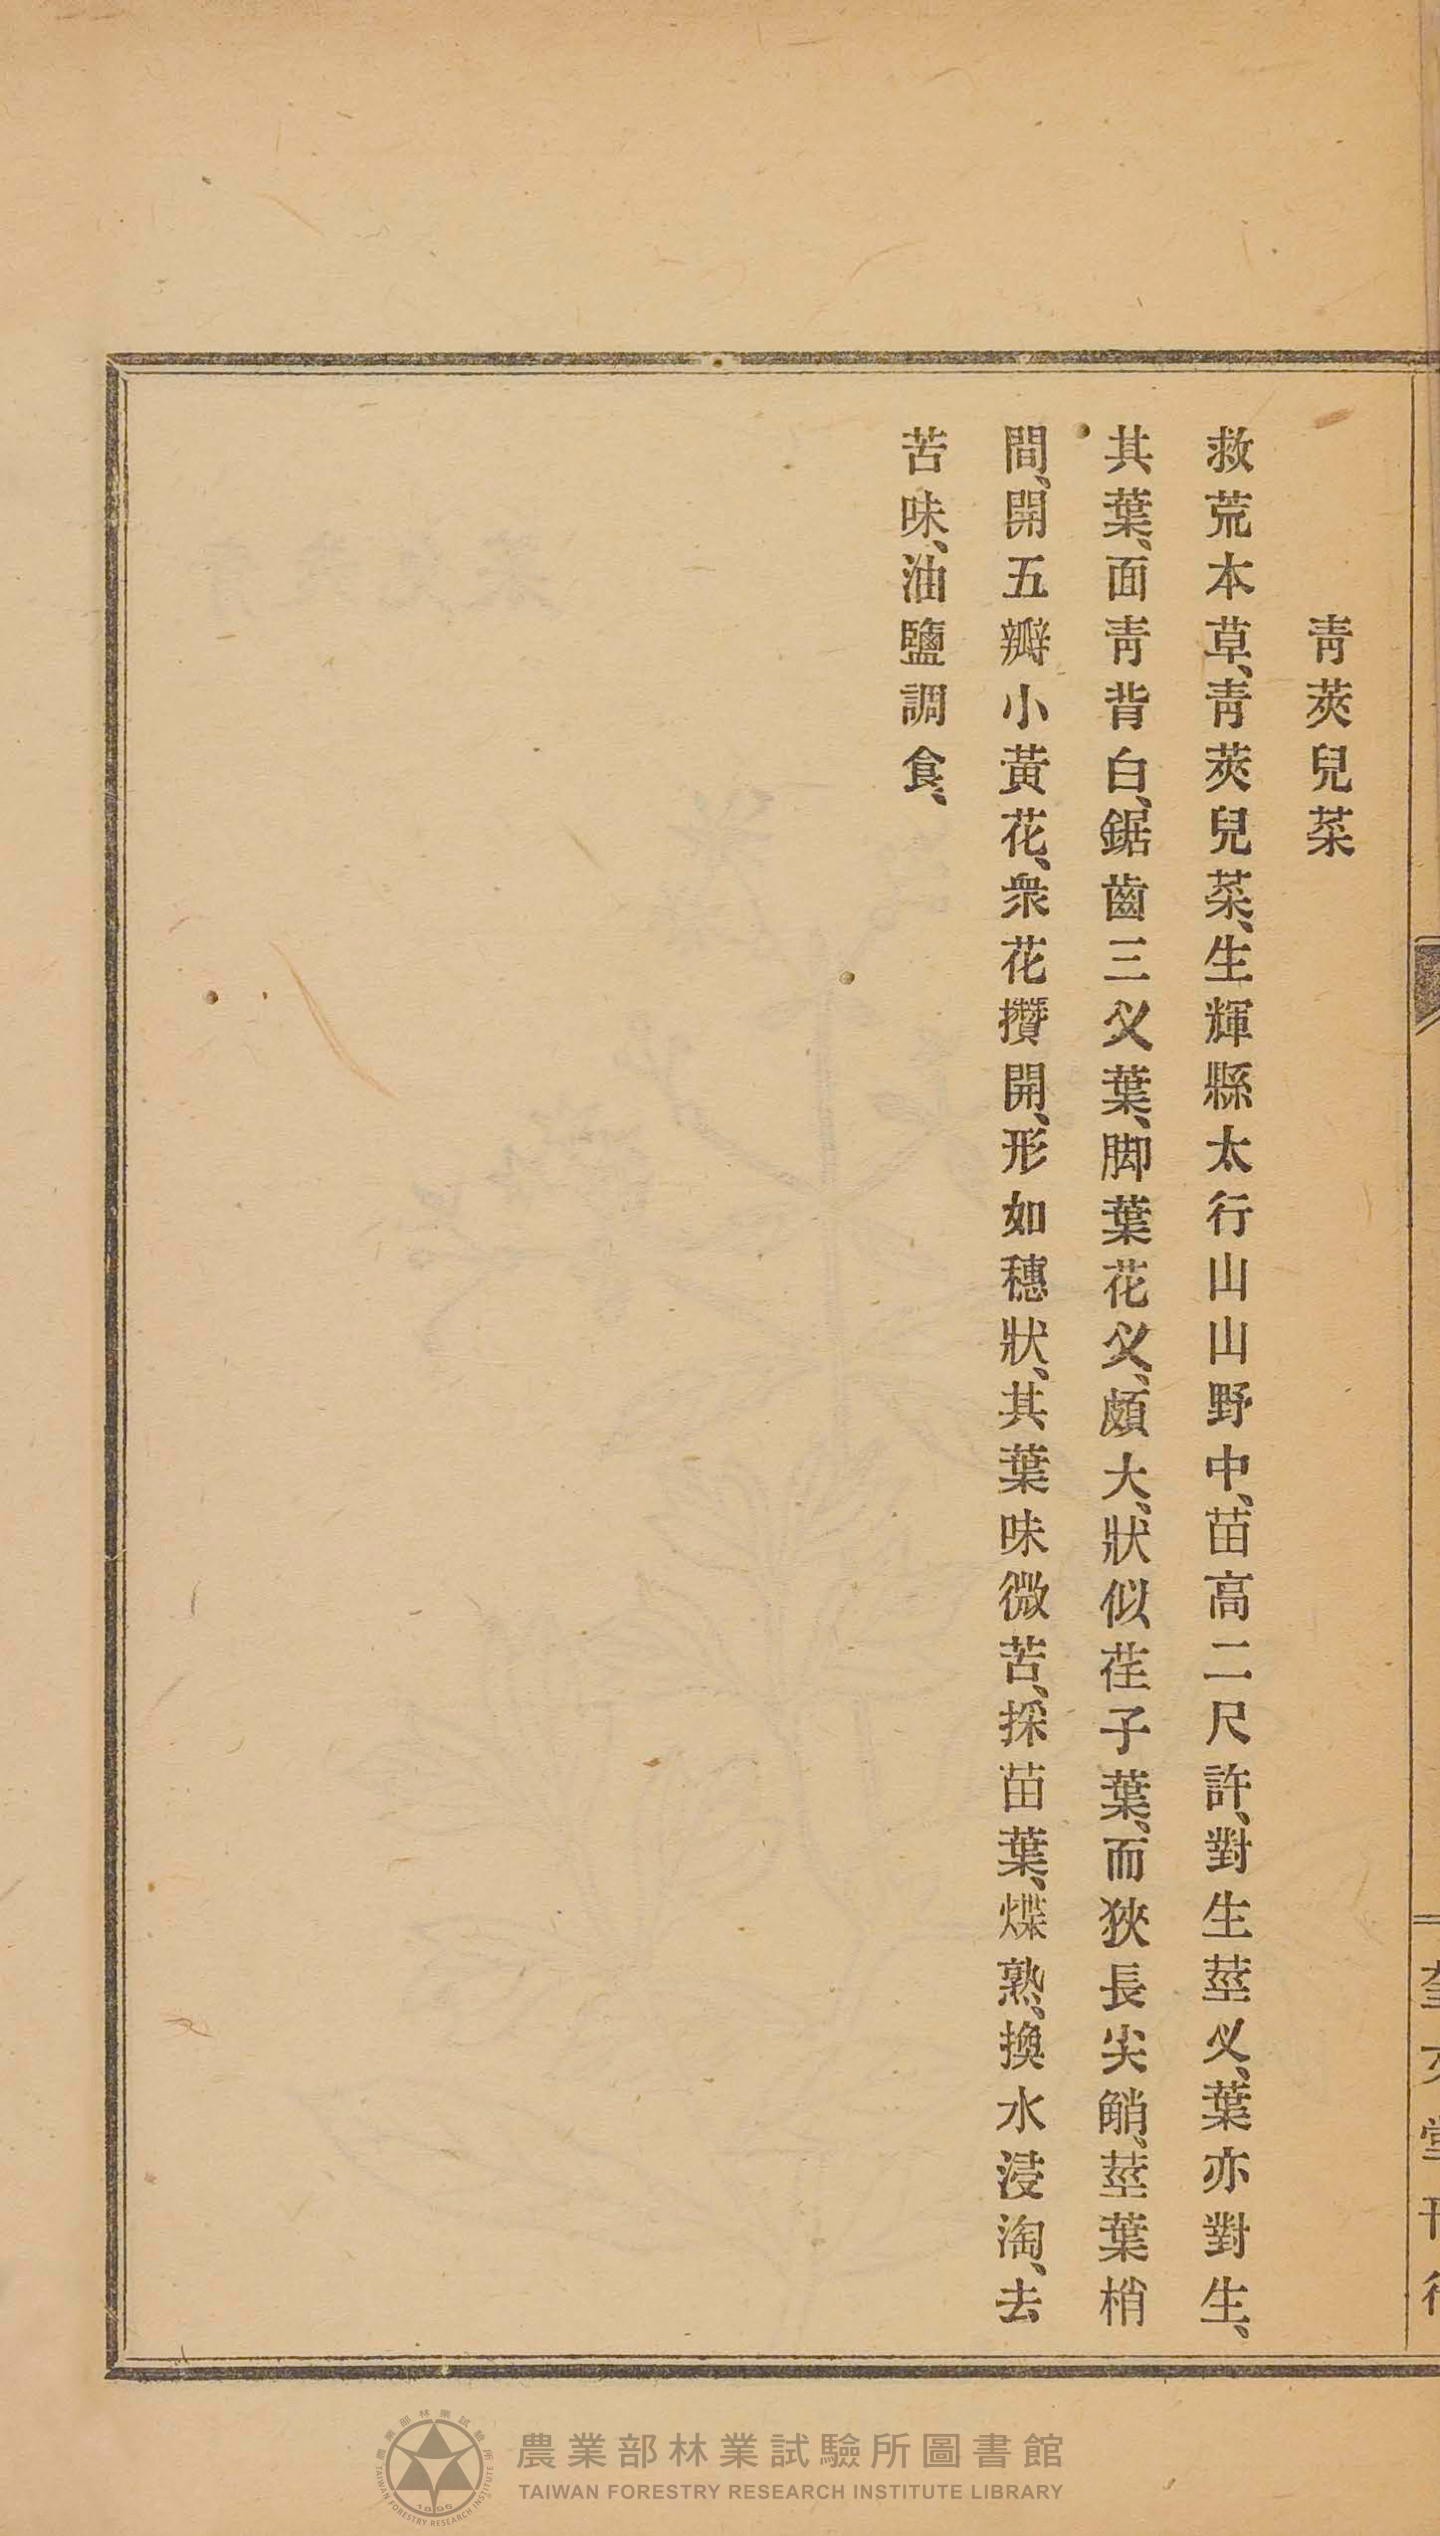 靑莢兒菜
救荒本草、靑莢兒菜、生輝縣太行山山野中、苗高二尺許、對生莖义、葉亦對生、
其葉、面靑背白、鋸齒三父葉、脚葉花父、頗大、狀似荏子葉、而狹長尖觘、莖葉梢
間、開五瓣小黃花、衆花攢開、形如穗狀、其葉味微苦、採苗葉、煠熟、換水浸淘、去
苦味、油鹽調食、
農業部林業試驗所圖書館
TAIWAN FORESTRY RESEARCH INSTITUTE LIBRARY
農業部林業試驗所
TAIWAN FORESTRY RESEARCH INSTITUTE
1896